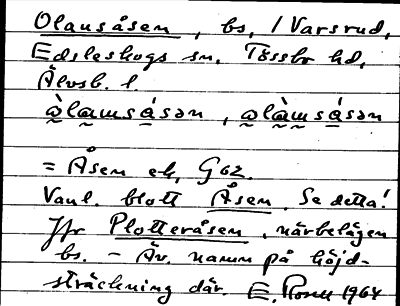 Olausåsen, bs, i Varsrud,
Edsleskogs sn. Tössbo hd,
Älvsb. l.
= Åsen ek, G02.
Vanl. blott Åsen. Se detta!
Jfr Plotteråsen, närbelägen
bs. – Äv. namn på höjd-
sträckning där. E. Rosell 1964